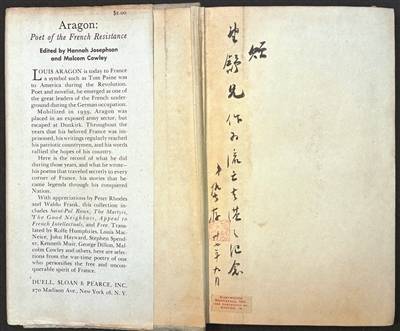 $2.00
Aragon:
Poet of the French Resistance
Edited by Hannah Josephson
and Malcolm Cowley
LOUIS ARAGON is today to France
a symbol such as Tom Paine was
to America during the Revolution.
Poet and novelist, he emerged as one of
the great leaders of the French under-
ground during the German occupation.
Mobilized in 1939, Aragon was
placed in an exposed army sector, but
escaped at Dunkirk. Throughout the
years that his beloved France was im-
prisoned, his writings regularly reached
his patriotic countrymen, and his words
rallied the hopes of his country.
Here is the record of what he did
during those years, and what he wrote—
his poems that traveled secretly to every
corner of France, his stories that be-
came legends through his conquered
Nation.
With appreciations by Peter Rhodes
and Waldo Frank, this collection in-
cludes Saint-Pol Roux, The Martyrs,
The Good Neighbors, Appeal to
French Intellectuals, and Free. Trans-
lated by Rolfe Humphries, Louis Mac-
Neice, John Hayward, Stephen Spend-
er, Kenneth Muir, George Dillon, Mal-
colm Cowley and others, here are selec-
tions from the war-time poetry of one
who personifies the free and uncon-
querable spirit of France.
DUELL, SLOAN & PEARCE, INC.
270 Madison Ave., New York 16, N. Y.
兄 作为流亡
紀念
年 月